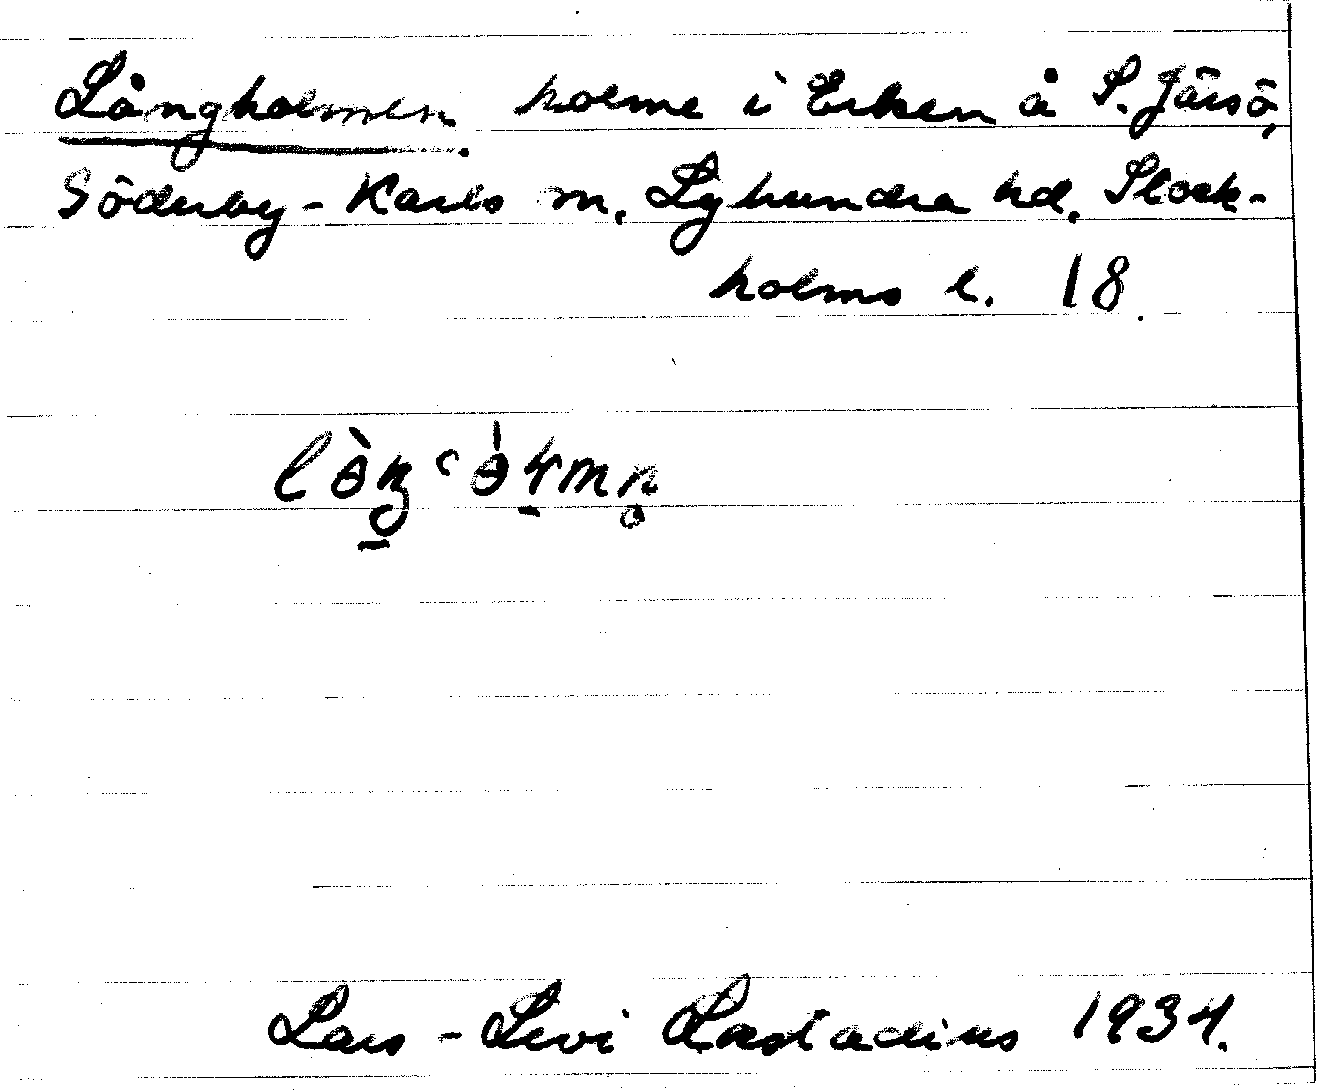 Långholmen. holme i Erken å S. Järsö,
Söderby-Karls sn. Lyhundra hd. Stock-
holms l. 18.
Lars-Levi Læstadius 1934.